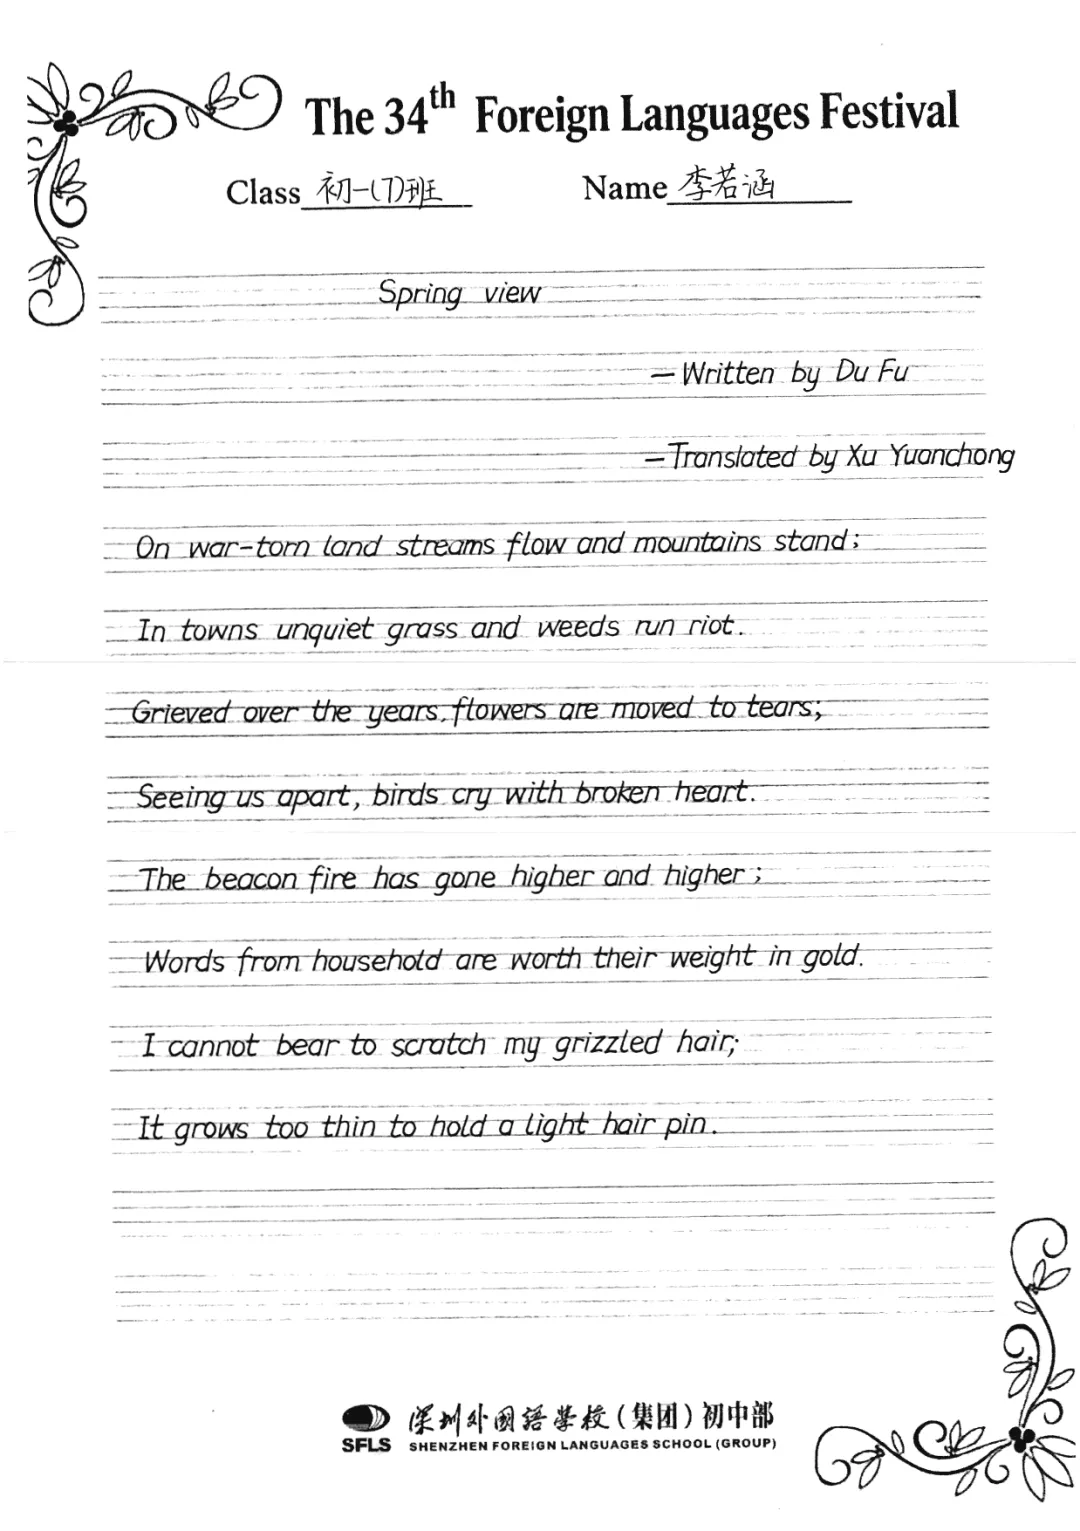 The 34th Foreign Languages Festival
Class 初一(7)班 Name 李若涵
Spring view
—Written by Du Fu
—Translated by Xu Yuanchong
On war-torn land streams flow and mountains stand;
In towns unquiet grass and weeds run riot.
Grieved over the years, flowers are moved to tears;
Seeing us apart, birds cry with broken heart.
The beacon fire has gone higher and higher;
Words from household are worth their weight in gold.
I cannot bear to scratch my grizzled hair;
It grows too thin to hold a light hair pin.
深圳外國語學校(集团)初中部
SFLS SHENZHEN FOREIGN LANGUAGES SCHOOL (GROUP)